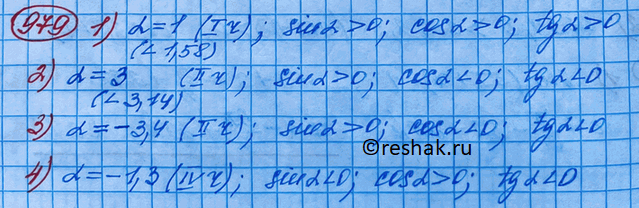 979 1) α=1 (I ч); sinα>0; cosα>0; tgα>0
(<1,58)
2) α=3 (II ч); sinα>0; cosα<0; tgα<0
(<3,14)
3) α=-3,4 (II ч); sinα>0; cosα<0; tgα<0
©reshak.ru
4) α=-1,3 (IV ч); sinα<0; cosα>0; tgα<0